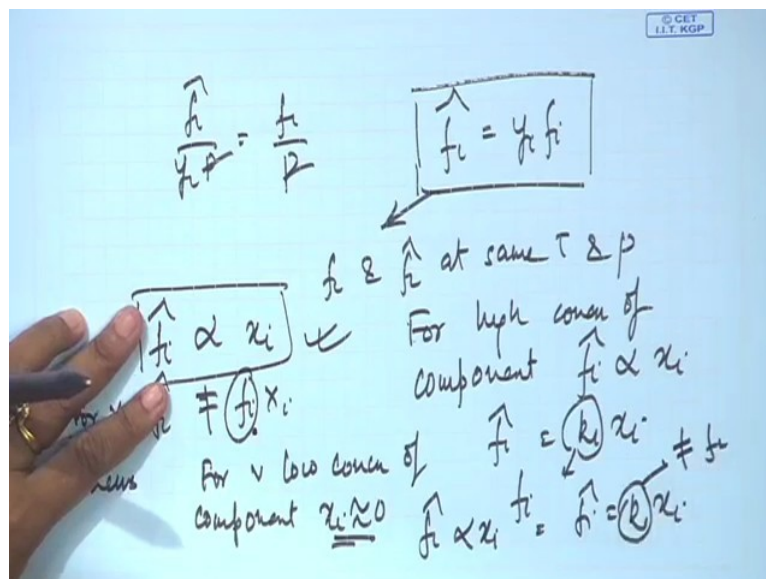 © CET
I.I.T. KGP
f̂i / yi p = fi / p
f̂i = yi fi
fi & f̂i at same T & p
f̂i ∝ xi ✓
For high concn of
component f̂i ∝ xi
f̂i ≠ fi xi
f̂i = ki xi
For v low concn of
component xi ≈ 0 f̂i ∝ xi
fi = f̂i = k xi
≠ fi